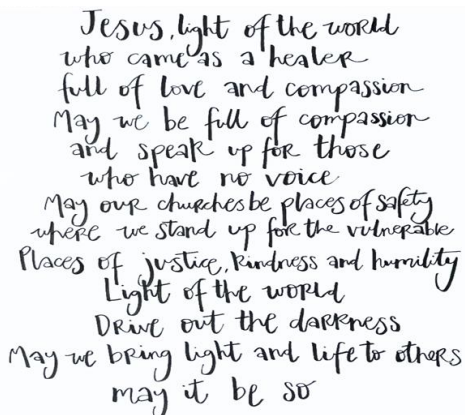 Jesus, light of the world
who came as a healer
full of love and compassion
May we be full of compassion
and speak up for those
who have no voice
May our churches be places of safety
where we stand up for the vulnerable
Places of justice, kindness and humility
Light of the world
Drive out the darkness
May we bring light and life to others
may it be so